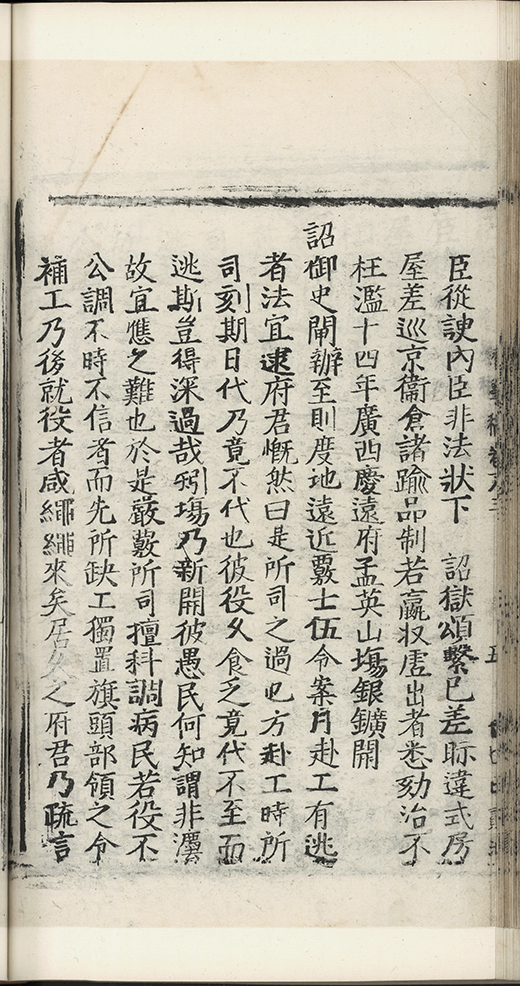 臣從諛內臣非法狀下　詔獄頌繫已差眎違式房
屋差巡京衞倉諸踰品制若羸收虛出者悉劾治不
枉濫十四年廣西慶遠府孟英山塲銀鑛開
詔御史開辦至則度地遠近覈士伍令案月赴工有逃
者法宜逮府君慨然曰是所司之過也方赴工時所
司刻期日代乃竟不代也彼役久食乏竟代不至而
逃斯豈得深過哉矧塲乃新開彼愚民何知謂非灋
故宜應之難也於是嚴覈所司擅科調病民若役不
公調不時不信者而先所缺工獨置旗頭部領之令
補工乃後就役者咸繩繩來矣居久之府君乃疏言